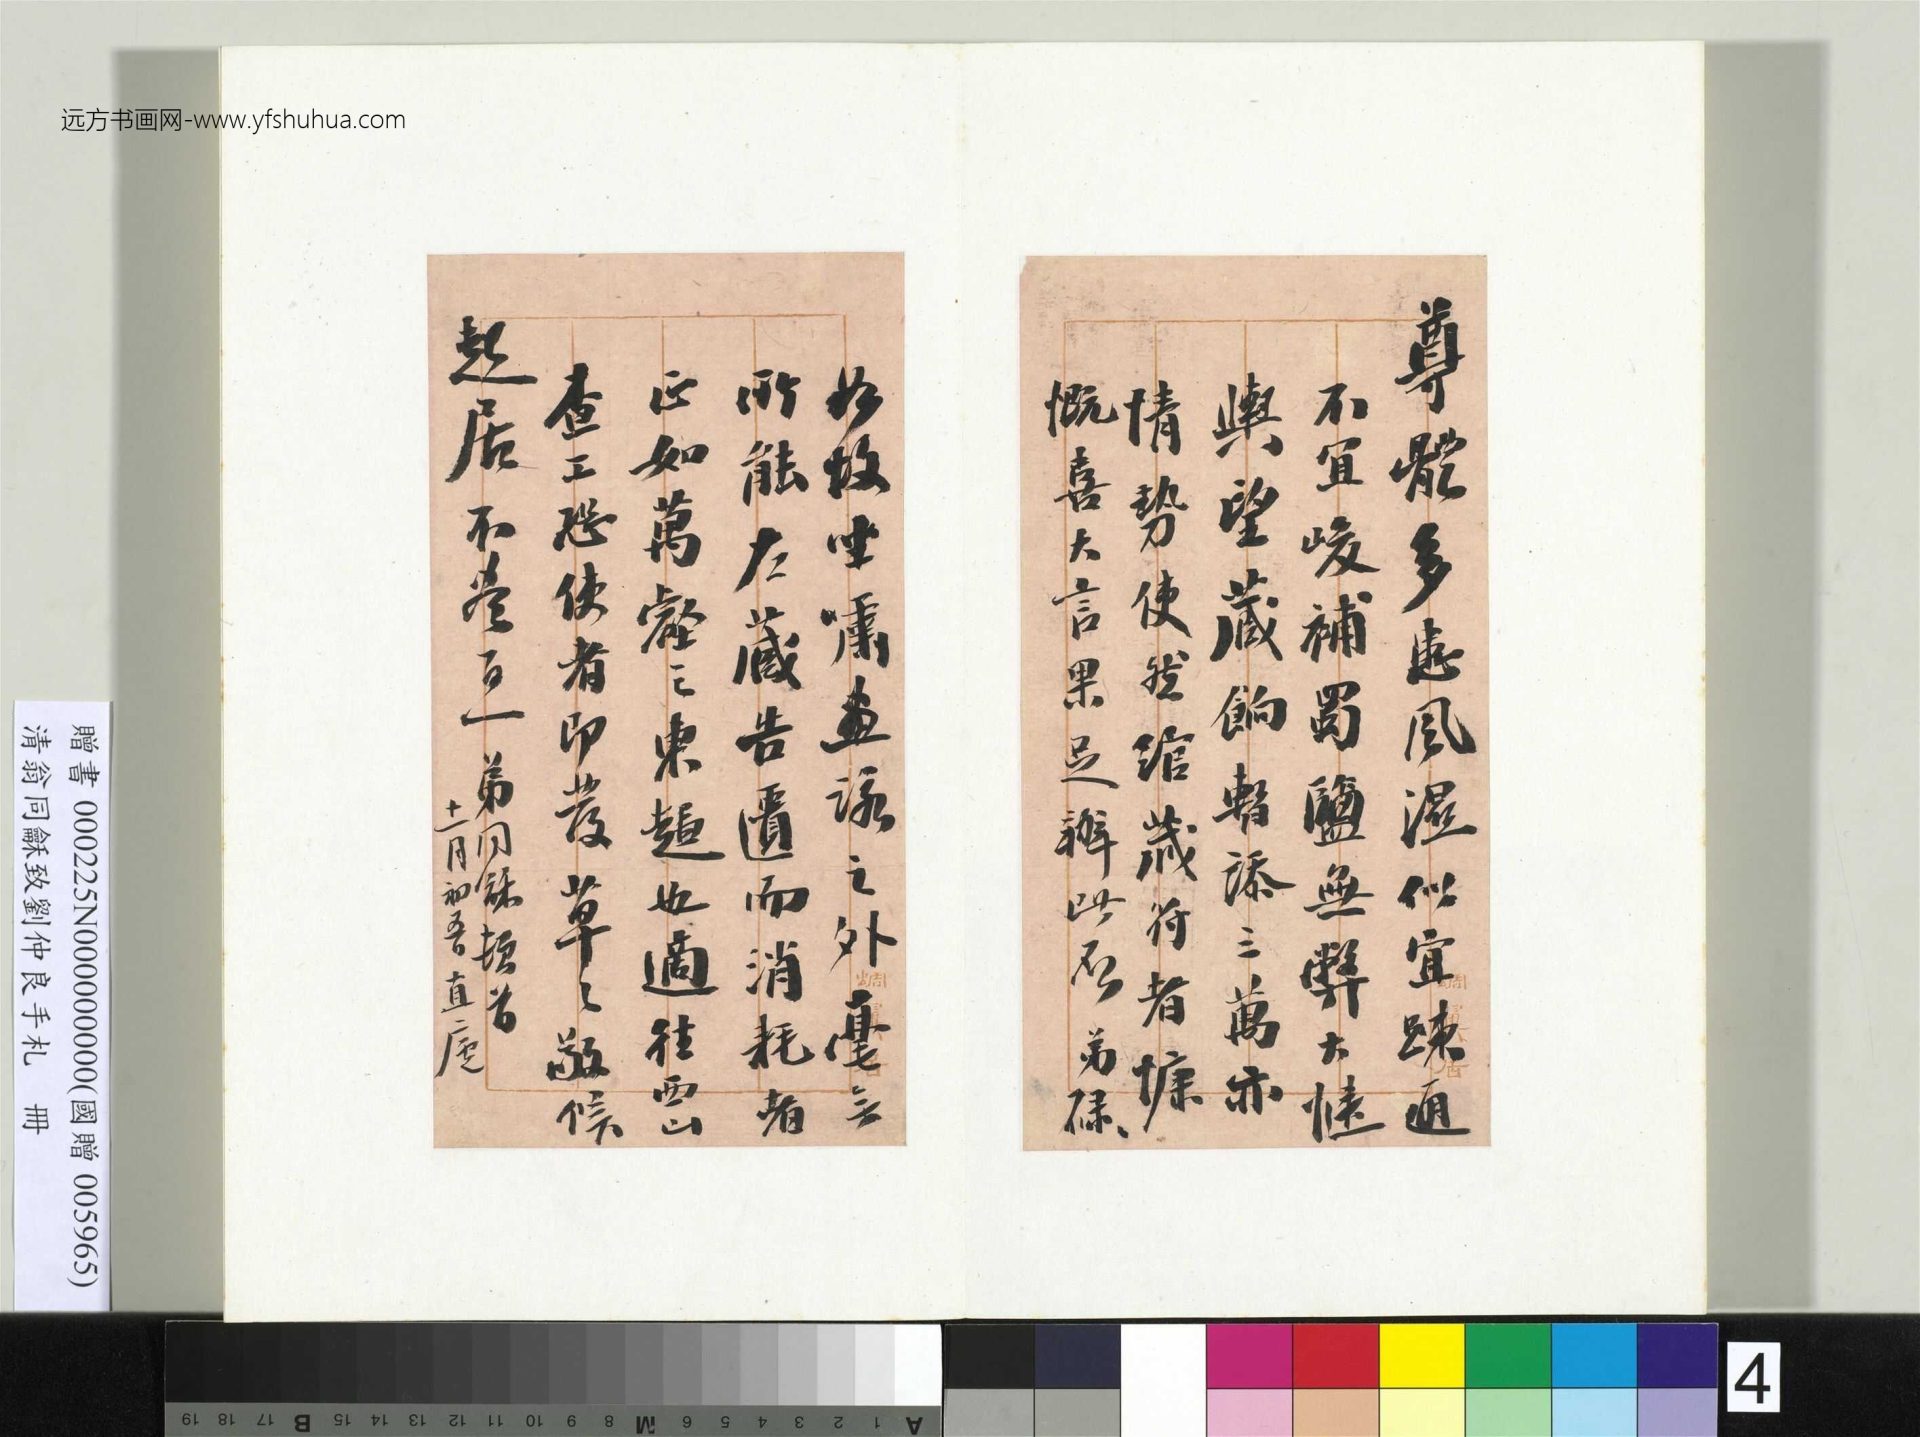 尊體多患風濕似宜疎通
不宜峻補蜀鹽無弊大愜
輿望藏餉暫添三萬亦
情勢使然綰藏符者慷
慨喜大言果足辦此否弟碌碌
如故坐嘯畫諾之外毫無
所能左藏告匱而消耗者
正如萬壑之東趨也適往西山
查工恐使者即發草草敬候
起居不盡百一 弟同龢頓首
十一月初五日直廬
远方书画网-www.yfshuhua.com
贈書 000225N000000000(國贈 005965)
清翁同龢致劉仲良手札 冊
4
A 1 2 3 4 5 6 M 8 9 10 11 12 13 14 15 B 17 18 19